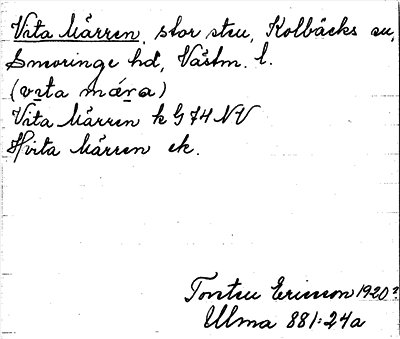 Vita Märren, stor sten, Kolbäcks sn,
Snevringe hd, Västm. l.
(vita mär̲a)
Vita Märren k G 74 NV
Hvita Märren ek.
Torsten Ericsson 1920?
Ulma 881:24a